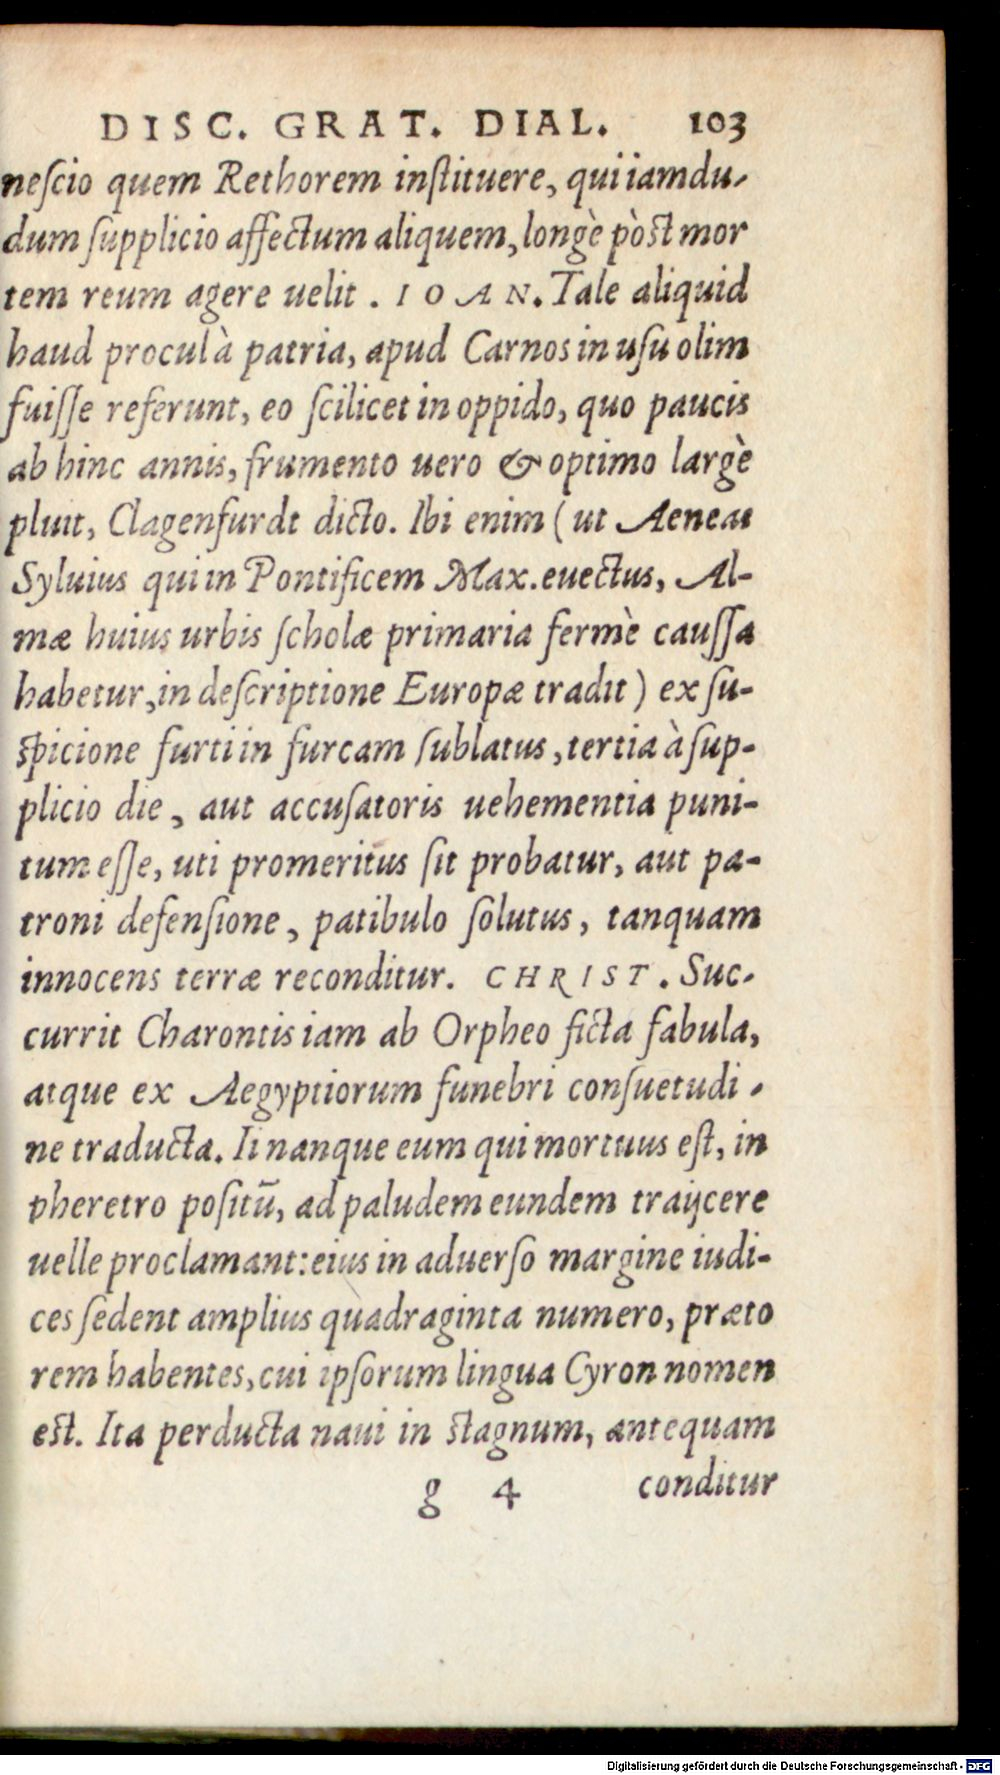 DISC. GRAT. DIAL. 103
neſcio quem Rethorem inſtituere, qui iamdu-
dum ſupplicio affectum aliquem, longè pòst mor
tem reum agere uelit. IOAN. Tale aliquid
haud procul à patria, apud Carnos in uſu olim
fuiſſe referunt, eo ſcilicet in oppido, quo paucis
ab hinc annis, frumento uero & optimo largè
pluit, Clagenfurdt dicto. Ibi enim (ut Aeneas
Syluius qui in Pontificem Max. euectus, Al-
mæ huius urbis ſcholæ primaria fermè cauſſa
habetur, in deſcriptione Europæ tradit) ex ſu-
ſpicione furti in furcam ſublatus, tertia à ſup-
plicio die, aut accuſatoris uehementia puni-
tum eſſe, uti promeritus ſit probatur, aut pa-
troni defenſione, patibulo ſolutus, tanquam
innocens terræ reconditur. CHRIST. Suc-
currit Charontis iam ab Orpheo ficta fabula,
atque ex Aegyptiorum funebri conſuetudi-
ne traducta. Ii nanque eum qui mortuus eſt, in
pheretro poſitū, ad paludem eundem traijcere
uelle proclamant: eius in aduerſo margine iudi-
ces ſedent amplius quàdraginta numero, præto
rem habentes, cui ipſorum lingua Cyron nomen
est. Ita perducta naui in stagnum, antequam
g 4 conditur
Digitalisierung gefördert durch die Deutsche Forschungsgemeinschaft - DFG